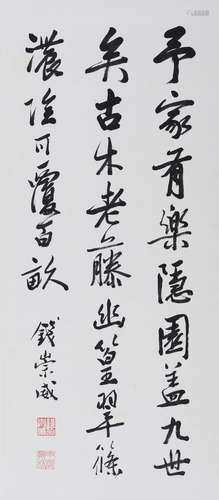 予家有樂隱園蓋九世
矣古木老藤幽篁翠篠
濃陰可覆百畝
錢崇威